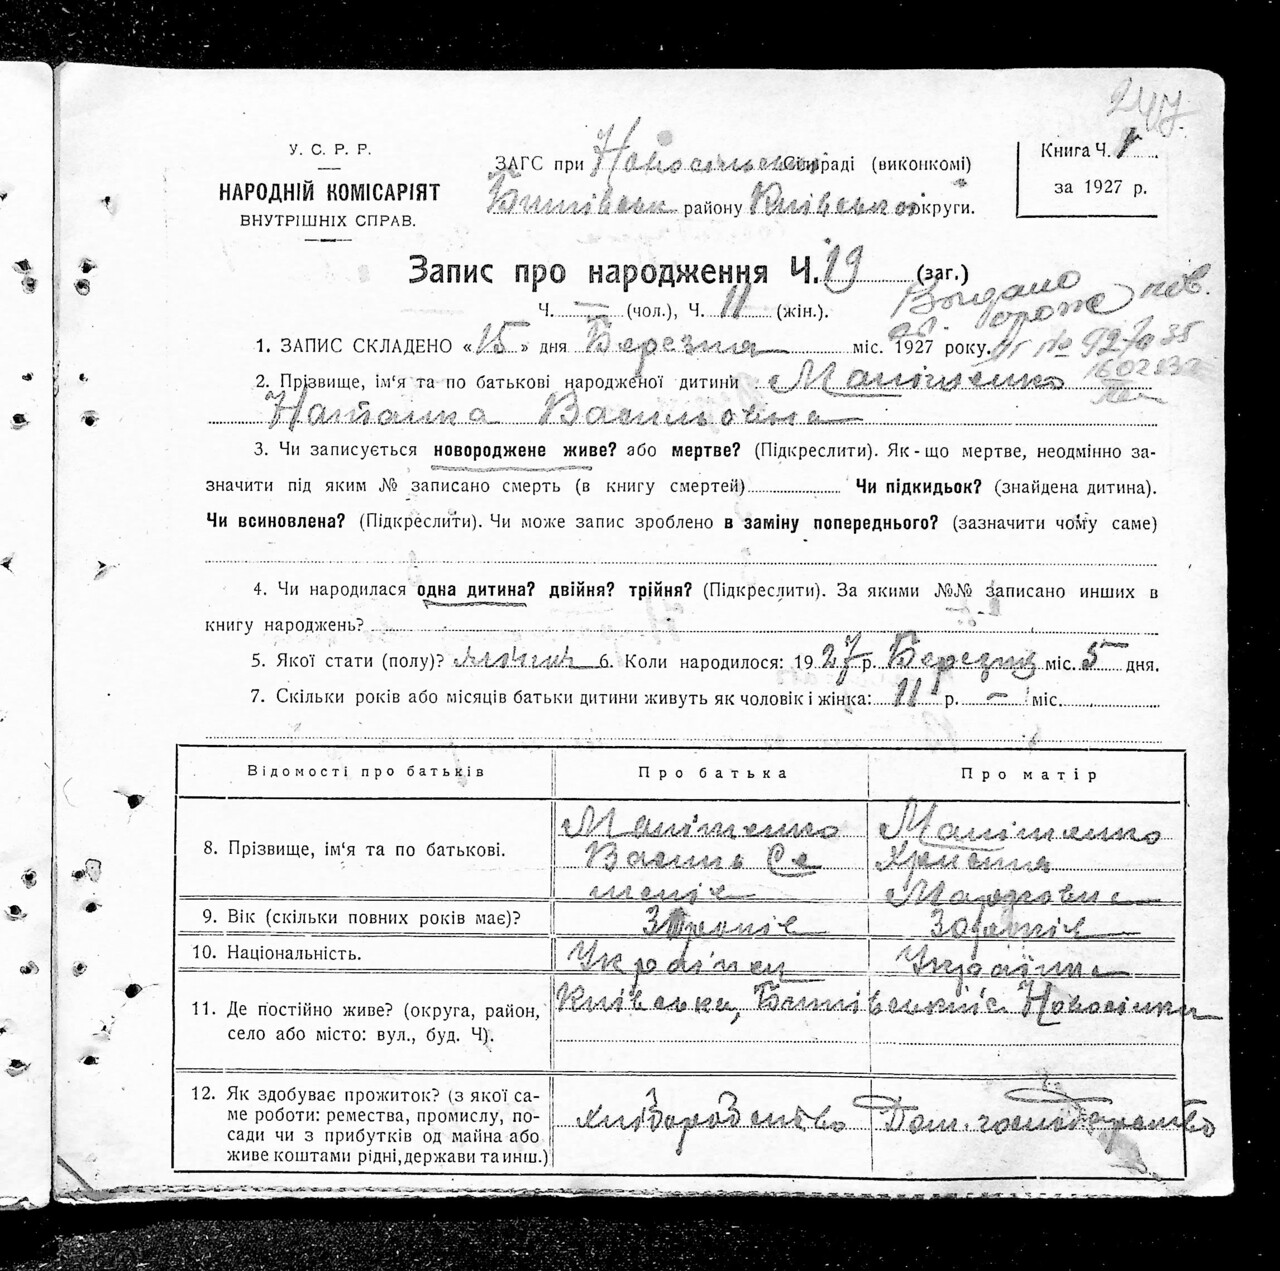 247.
У. С. Р. Р.
НАРОДНІЙ КОМІСАРІЯТ
ВНУТРІШНІХ СПРАВ.
ЗАГС при Новосільськ Сільраді (виконкомі)
району Київської округи.
Книга Ч. 1
за 1927 р.
Запис про народження Ч. 19 (заг.)
Ч. — (чол.), Ч. 11 (жін.).
Видано
1. ЗАПИС СКЛАДЕНО «15» дня Березня міс. 1927 року.
2. Прізвище, ім'я та по батькові народженої дитини
Наталка Васильовна
3. Чи записується новороджене живе? або мертве? (Підкреслити). Як-що мертве, неодмінно за-
значити під яким № записано смерть (в книгу смертей) Чи підкидьок? (знайдена дитина).
Чи всиновлена? (Підкреслити). Чи може запис зроблено в заміну попереднього? (зазначити чому саме)
4. Чи народилася одна дитина? двійня? трійня? (Підкреслити). За якими №№ записано инших в
книгу народжень?
5. Якої стати (полу)? жіноч 6. Коли народилося: 1927 р. Березня міс. 5 дня.
7. Скільки років або місяців батьки дитини живуть як чоловік і жінка: 11 р. — міс.
Відомості про батьків
Про батька
Про матір
8. Прізвище, ім'я та по батькові.
Василь Се
менів
Христина
Марковна
9. Вік (скільки повних років має)?
років
30 років
10. Національність.
Українец
Українка
11. Де постійно живе? (округа, район,
село або місто: вул., буд. Ч).
Київська, Новосілки
12. Як здобуває прожиток? (з якої са-
ме роботи: ремества, промислу, по-
сади чи з прибутків од майна або
живе коштами рідні, держави та инш.)
хліборобство
Дом. господарство